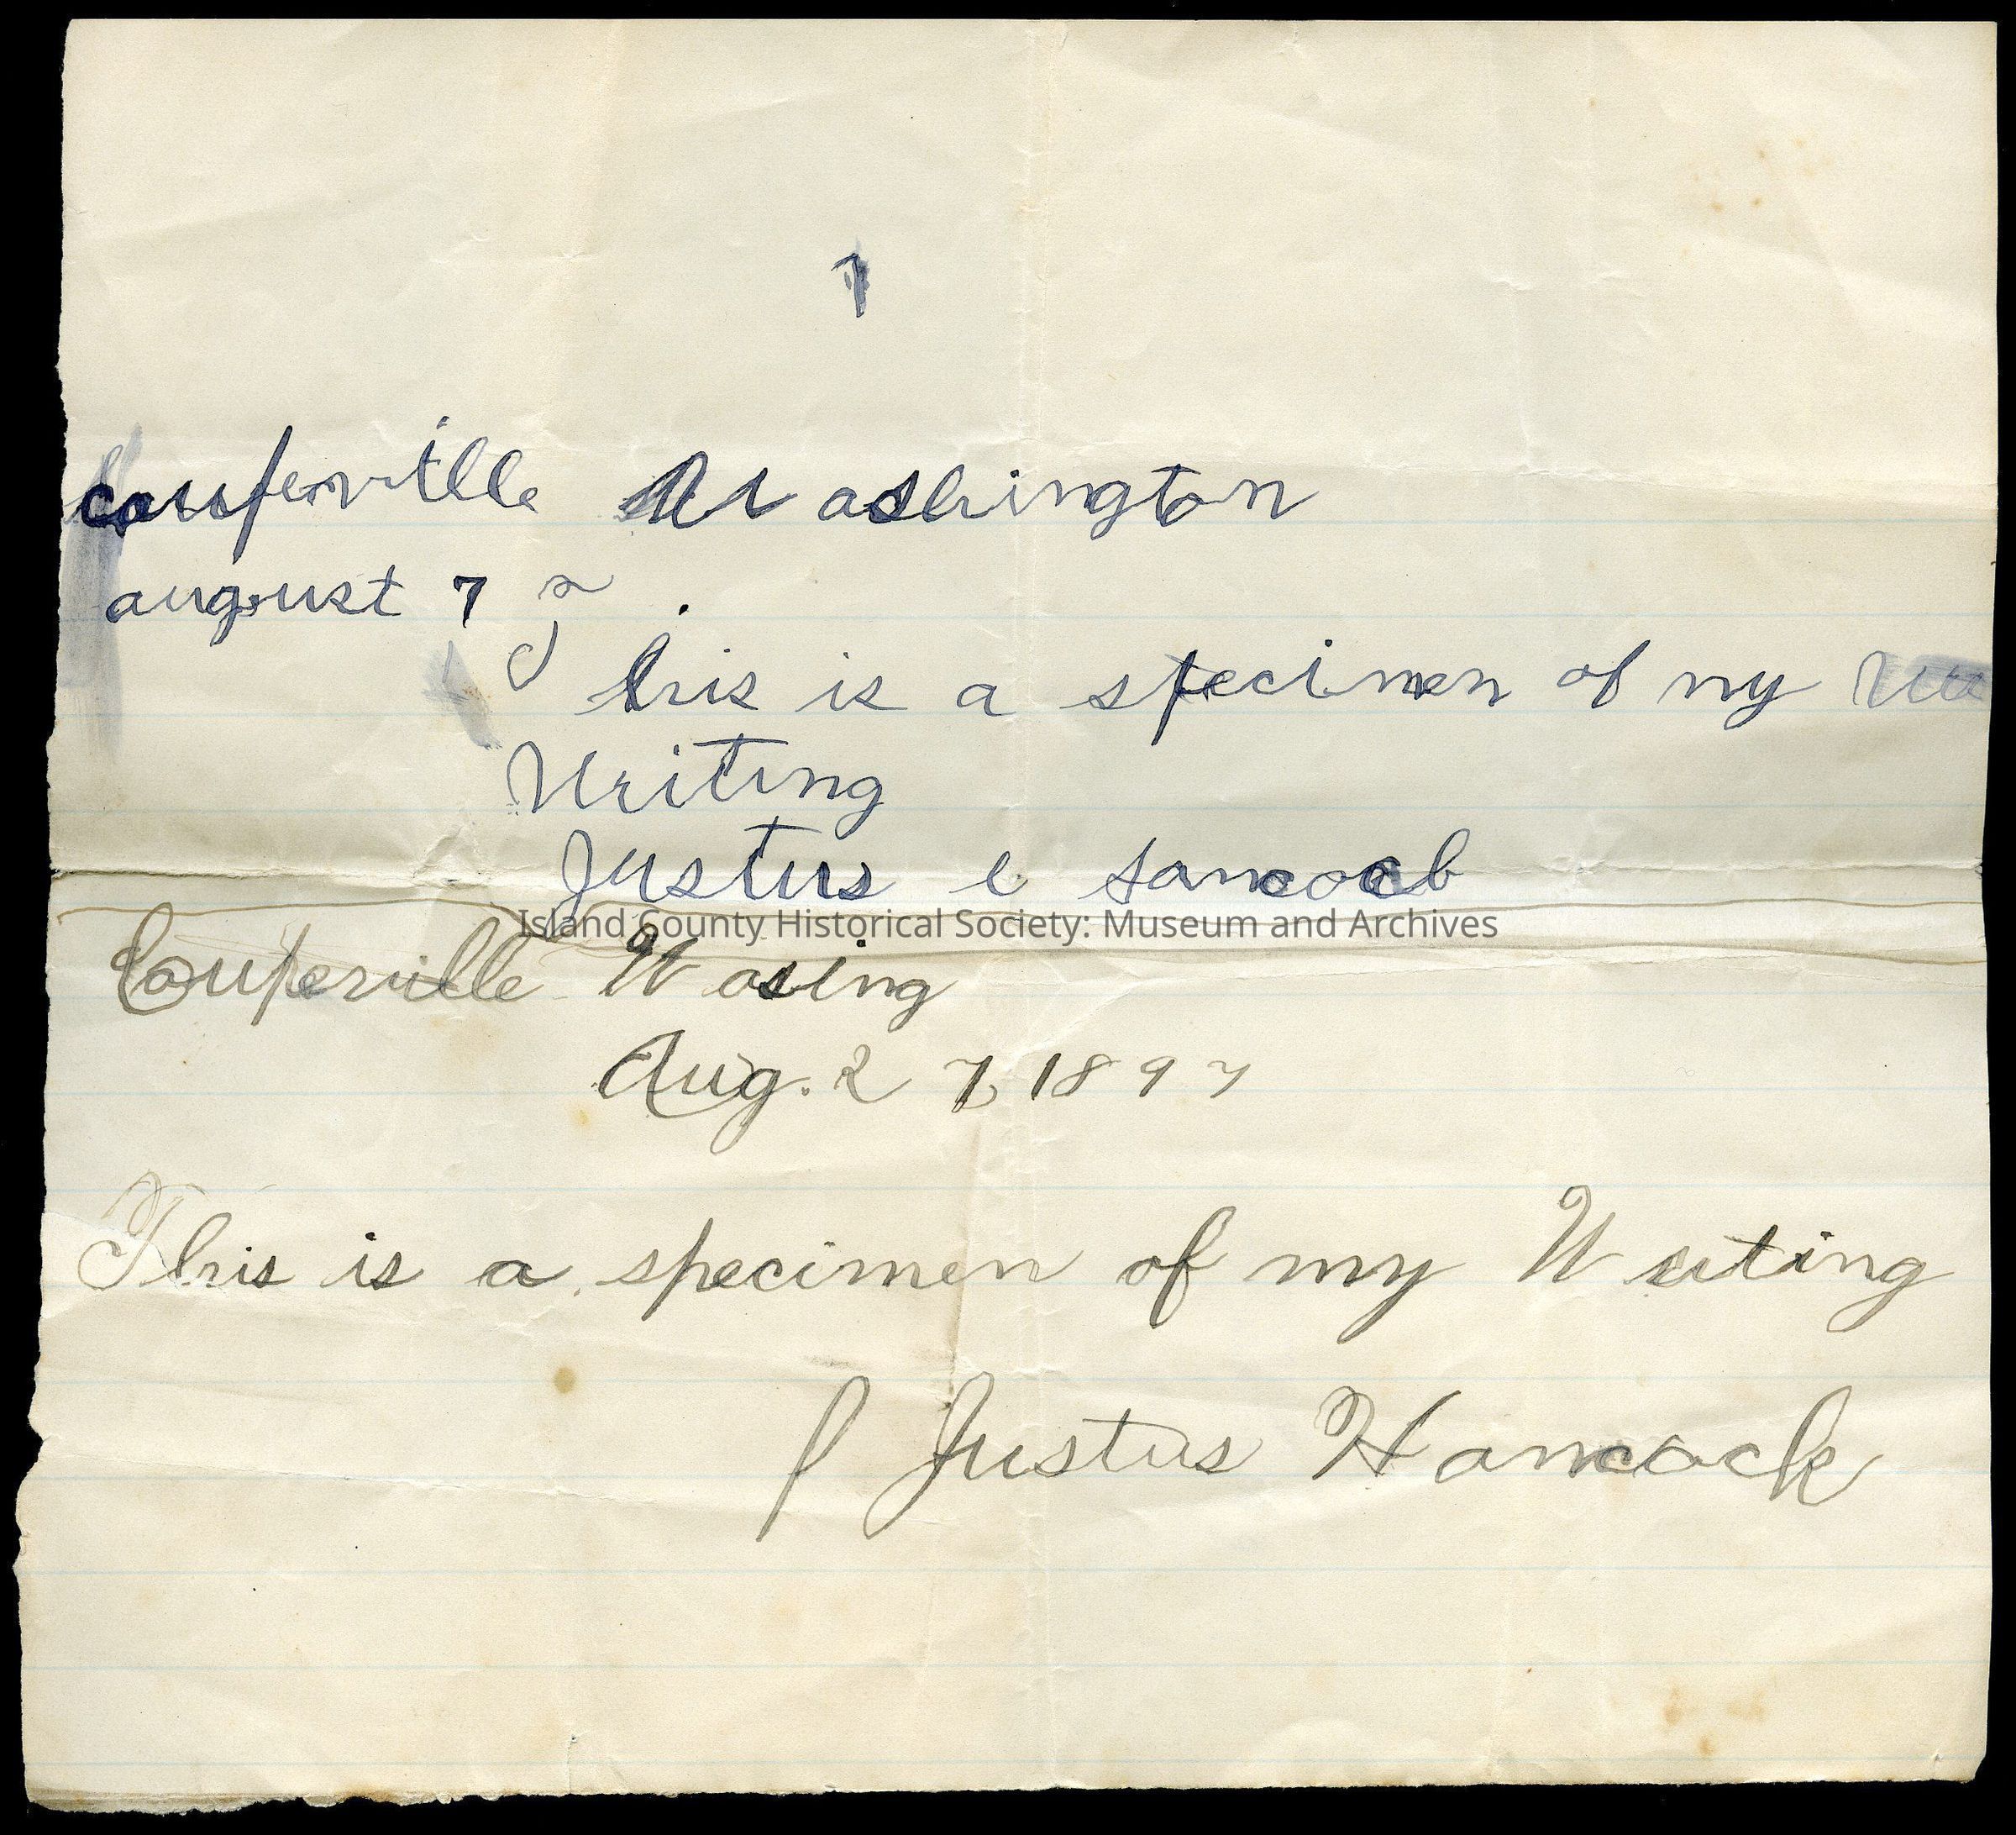 couperville Washington
august 7
This is a specimen of my
Writing
Justus e
Island County Historical Society: Museum and Archives
Couperville Wasing
Aug. 27, 1897
This is a specimen of my Writing
Justus Hancock